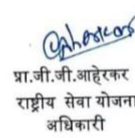 प्रा.जी.जी.आहेरकर
राष्ट्रीय सेवा योजना
अधिकारी